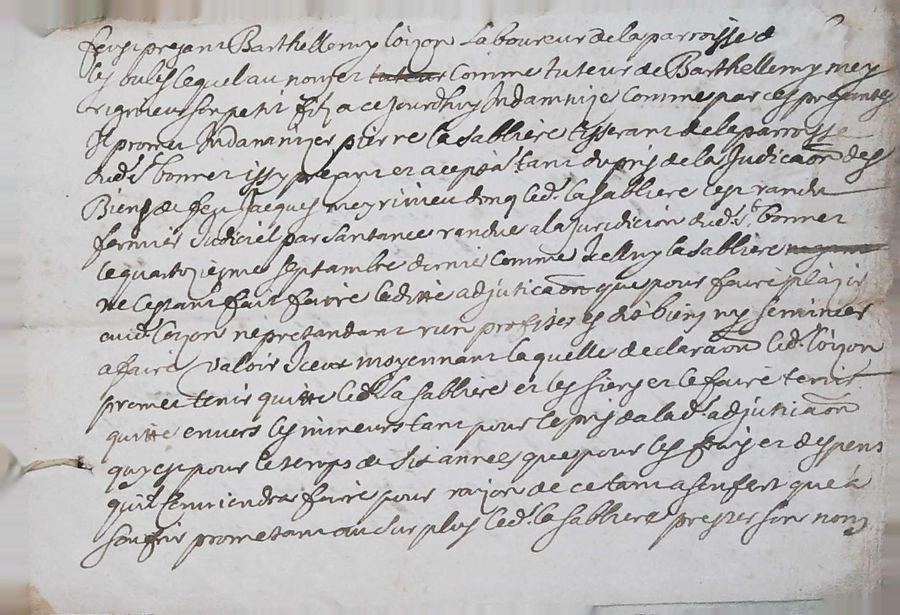 feust present Barthellemy loizon laboureur de la parroisse de
les bulles lequel au nom et tuteur comme tuteur de Barthellemy mey
son petit filz a ce jourdhuy Indamnize comme par ces presantes
Il promet Indamnizer pierre la sabliere tisserant de la parroisse
dud st bonnet issy present et aceptant du pris de la Judicaõn des
Biens de feu Jacques meyrinieu donq led. la sabliere cest randu
fermier Judiciel par santance randue a la juridicion dud st bonnet
le quatorziesme septambre dernier comme Icelluy la sabliere
ne cestant fait faire laditte adjuticaõn que pour faire plaizir
aud. loizon ne pretandant rien profiter es dits biens ny seminier
a faire valoir Iceux moyennant laquelle declaraõn led. loizon
promet tenir quitte led. la sabliere et les siens et le faire tenir
quitte envers les mineurs tant pour le pris de lad. adjuticaõn
quy est pour le temps de six annees que pour les frais et despens
quil conviendra faire pour raizon de ce tant a son fait que a
souffrir prometant au surplus led. la sabliere prester son nom